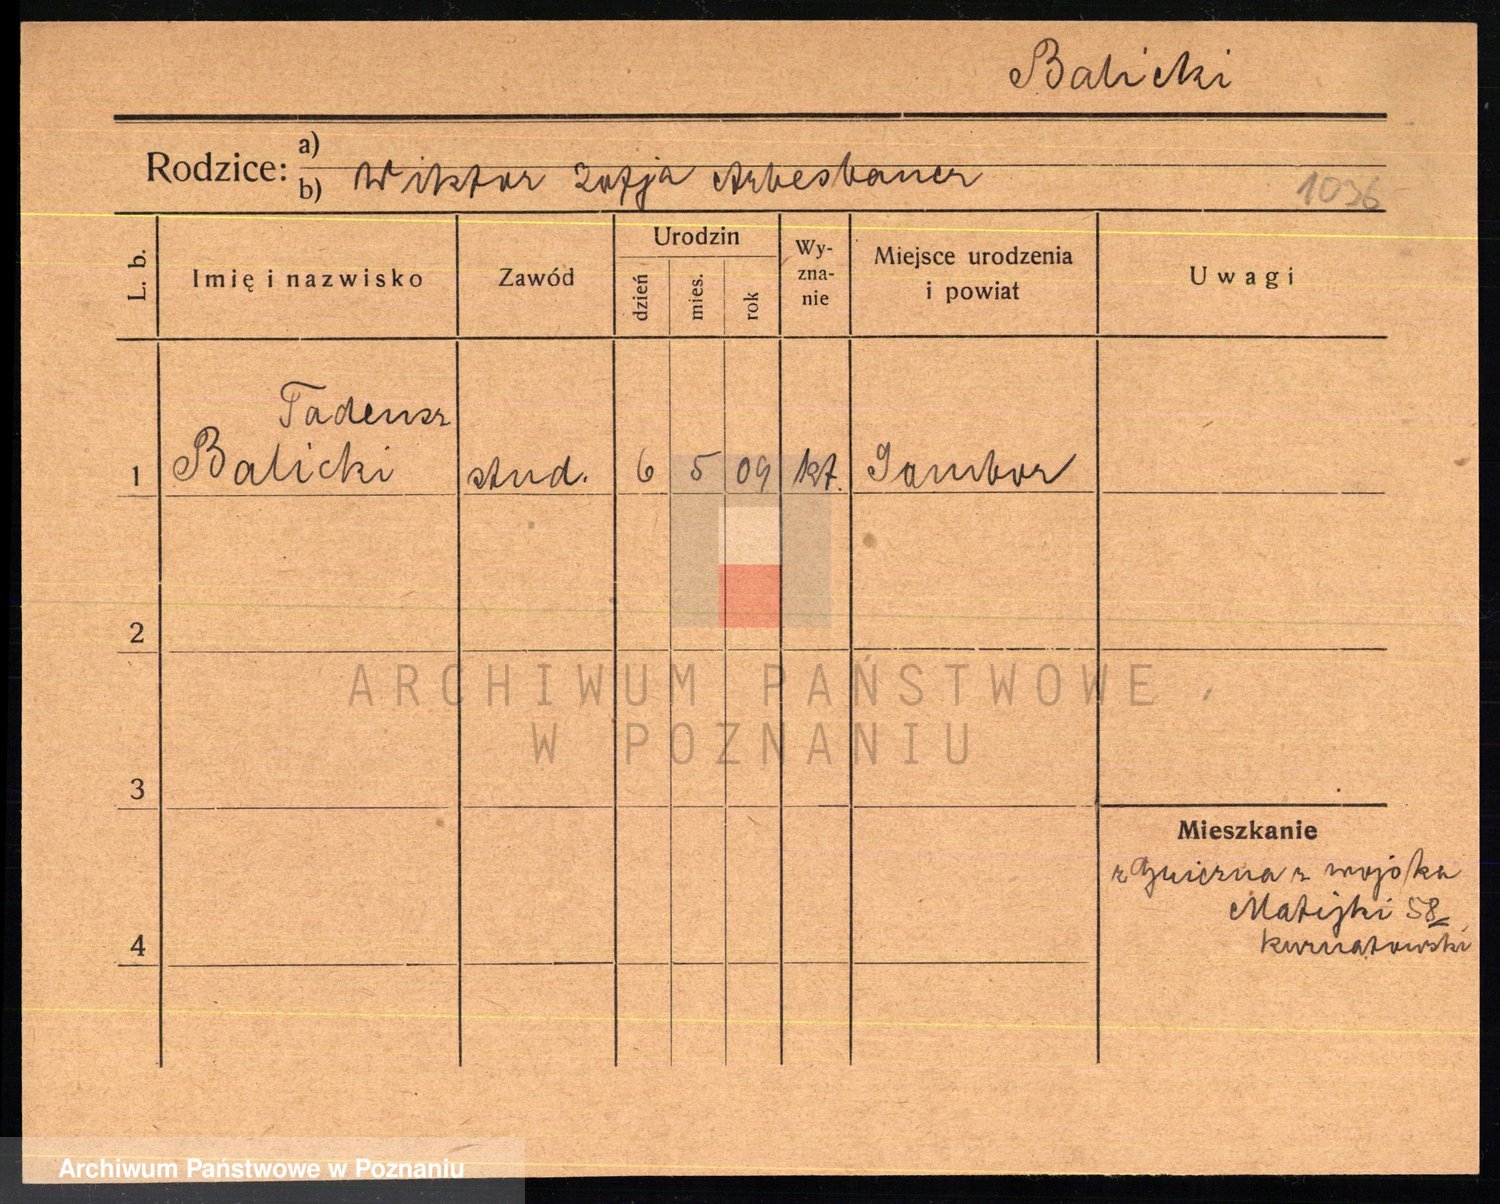 Balicki
Rodzice: a)
b) Wiktor Zofja Arbesbauer
1036
L. b.
Imię i nazwisko
Zawód
Urodzin
dzień
mies.
rok
Wy-
zna-
nie
Miejsce urodzenia
i powiat
Uwagi
Tadeusz
1 Balicki stud. 6 5 09 kt. Sambor
2
3
4
Mieszkanie
z Gniezna z wojska
Matejki 58
Kurnatowski
ARCHIWUM PAŃSTWOWE
W POZNANIU
Archiwum Państwowe w Poznaniu